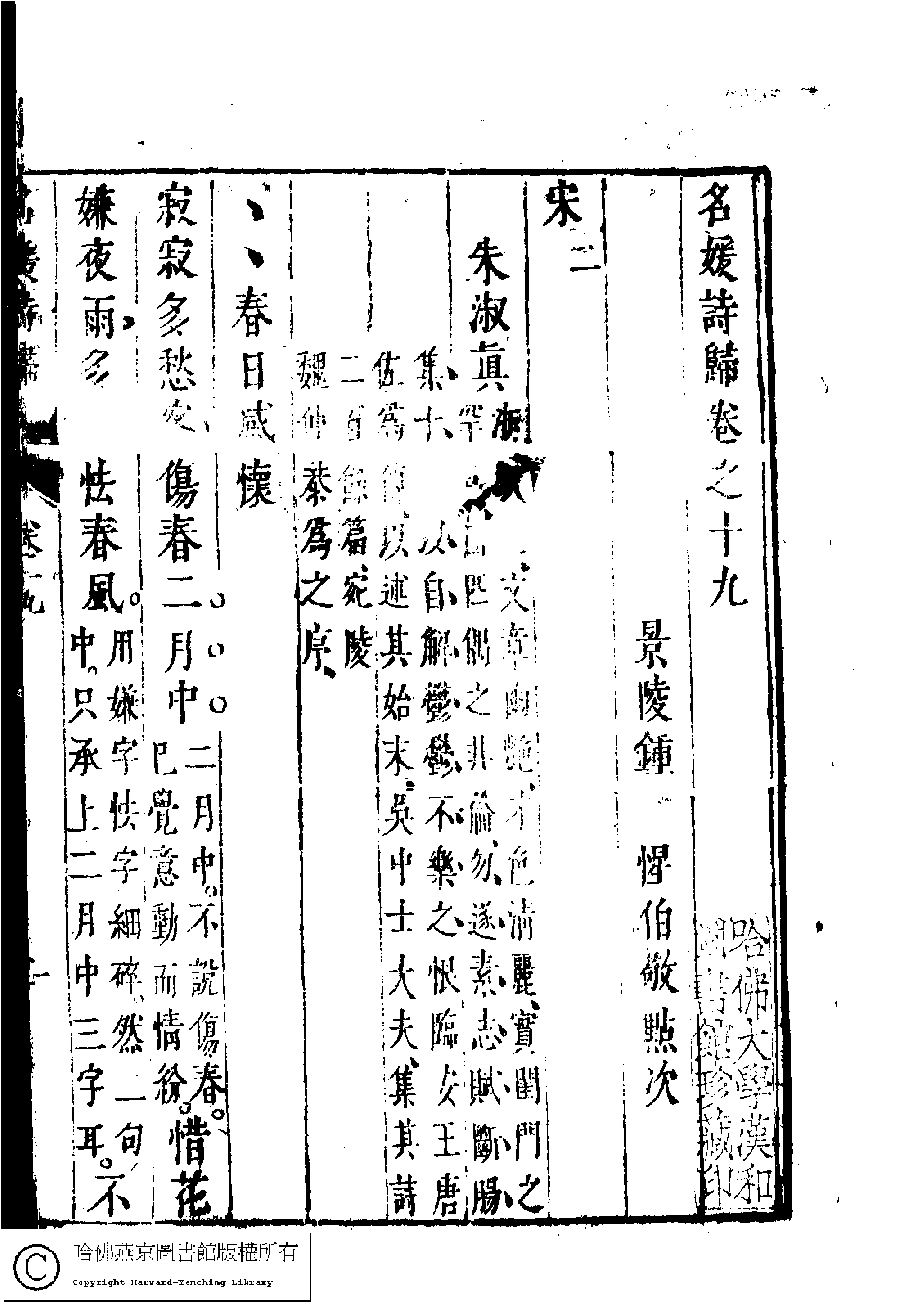 名媛詩歸卷之十九
景陵鍾 惺伯敬點次
宋二
朱淑眞
浙 文章幽艶、才色清麗、實閨門之
罕 因匹偶之非倫、勿遂素志、賦斷腸
集十 以自解鬱鬱不樂之恨、臨安王唐
佐爲傳以述其始末。吳中士大夫、集其詩
二百餘篇、宛陵
魏仲恭爲之序、
、、春日感懷
寂寂多愁客、傷春二月中。
二月中。不說傷春。
已覺意動而情紛。
惜花
嫌夜雨、多怯春風。
用嫌字怯字細碎。然一句
中。只承上二月中三字耳。
不
名媛詩歸 卷十九 一
哈佛大學漢和
圖書館珍藏印
哈佛燕京圖書館版權所有
Copyright Harvard-Yenching Library